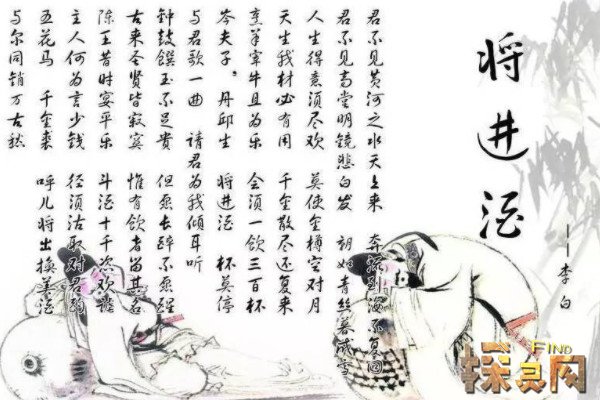 将进酒
——李白
君不见黄河之水天上来 奔流到海不复回
君不见高堂明镜悲白发 朝如青丝暮成雪
人生得意须尽欢 莫使金樽空对月
天生我材必有用 千金散尽还复来
烹羊宰牛且为乐 会须一饮三百杯
岑夫子。丹邱生 将进酒 杯莫停
与君歌一曲 请君为我倾耳听
钟鼓馔玉不足贵 但愿长醉不愿醒
古来圣贤皆寂寞 惟有饮者留其名
陈王昔时宴平乐 斗酒十千恣欢谑
主人何为言少钱 径须沽取对君酌
五花马 千金裘 呼儿将出换美酒
与尔同销万古愁
FIND
探灵网